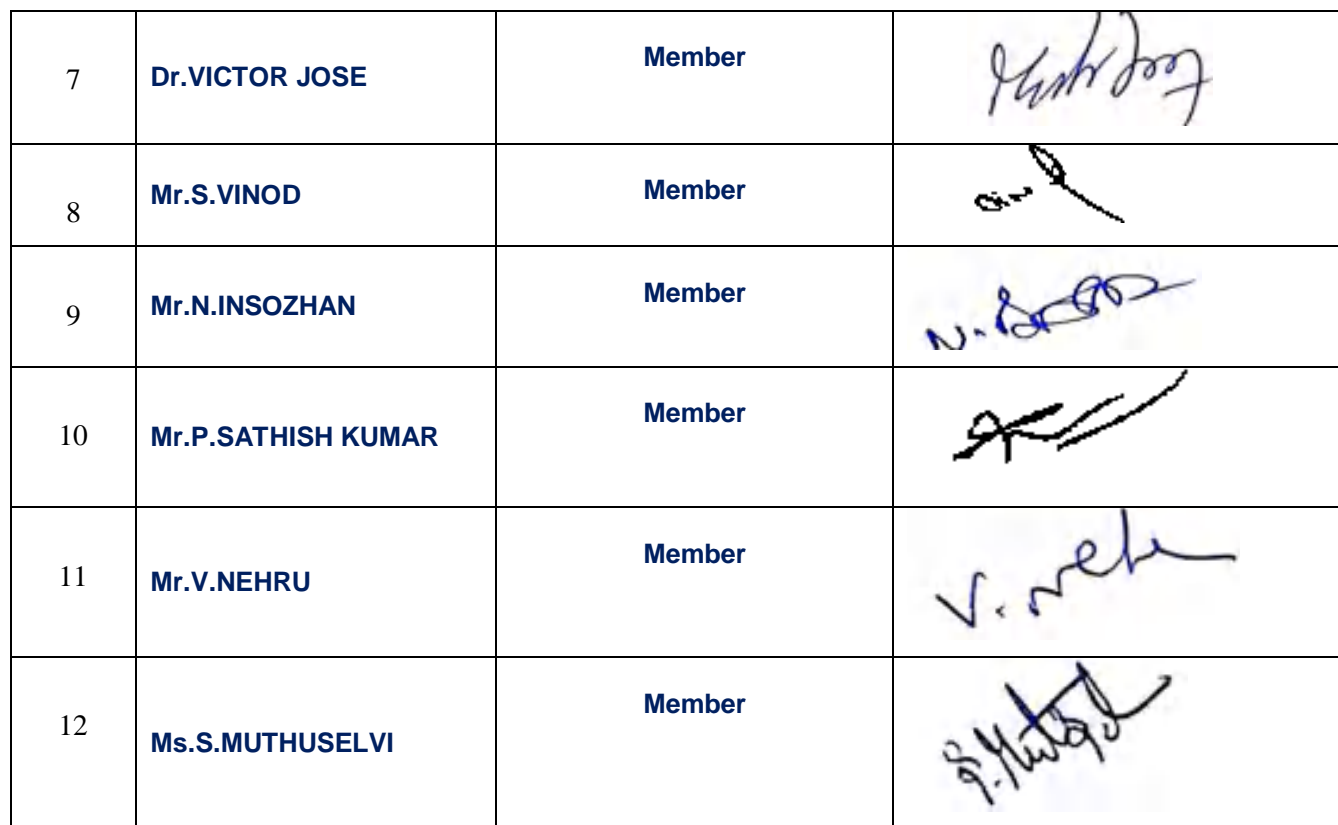 7 Dr.VICTOR JOSE Member
8 Mr.S.VINOD Member
9 Mr.N.INSOZHAN Member
10 Mr.P.SATHISH KUMAR Member
11 Mr.V.NEHRU Member V. Neh
12 Ms.S.MUTHUSELVI Member